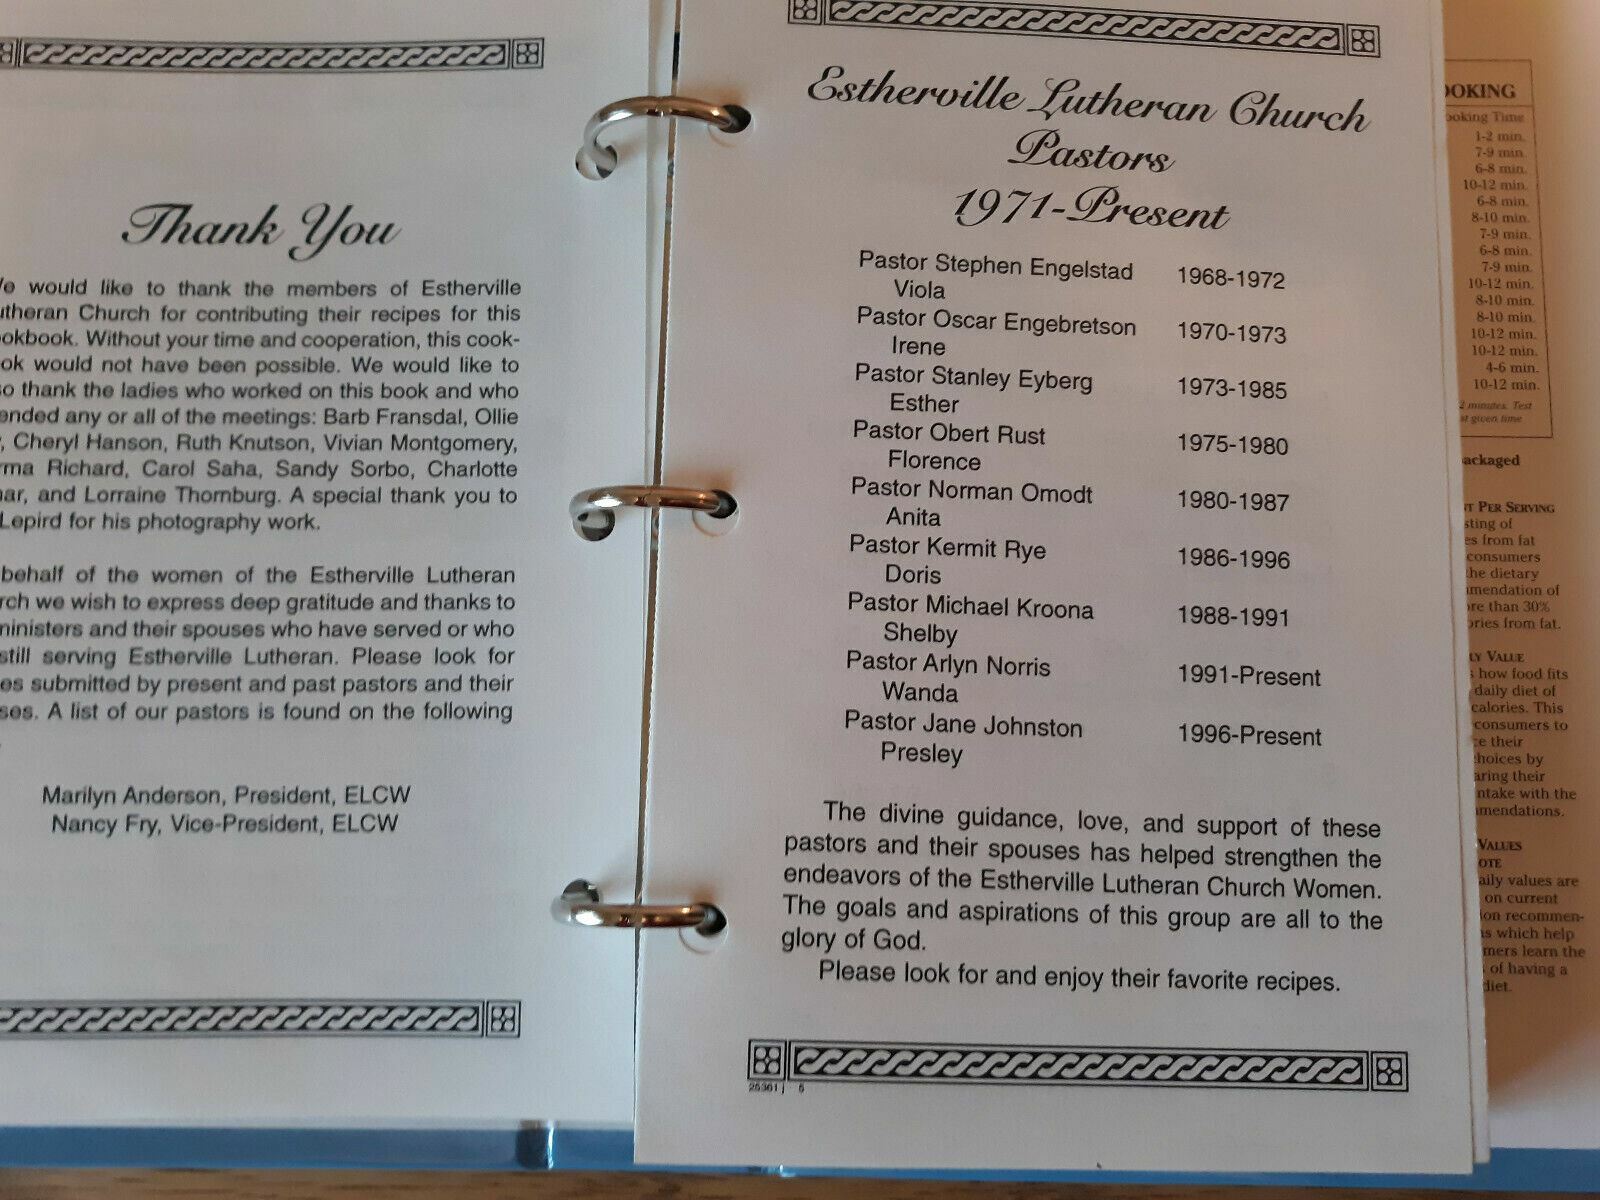 Thank You
would like to thank the members of Estherville
Church for contributing their recipes for this
Without your time and cooperation, this cook-
would not have been possible. We would like to
thank the ladies who worked on this book and who
any or all of the meetings: Barb Fransdal, Ollie
Cheryl Hanson, Ruth Knutson, Vivian Montgomery,
Richard, Carol Saha, Sandy Sorbo, Charlotte
and Lorraine Thornburg. A special thank you to
Lepird for his photography work.
behalf of the women of the Estherville Lutheran
we wish to express deep gratitude and thanks to
and their spouses who have served or who
still serving Estherville Lutheran. Please look for
submitted by present and past pastors and their
A list of our pastors is found on the following
Marilyn Anderson, President, ELCW
Nancy Fry, Vice-President, ELCW
Estherville Lutheran Church
Pastors
1971-Present
Pastor Stephen Engelstad 1968-1972
Viola
Pastor Oscar Engebretson 1970-1973
Irene
Pastor Stanley Eyberg 1973-1985
Esther
Pastor Obert Rust 1975-1980
Florence
Pastor Norman Omodt 1980-1987
Anita
Pastor Kermit Rye 1986-1996
Doris
Pastor Michael Kroona 1988-1991
Shelby
Pastor Arlyn Norris 1991-Present
Wanda
Pastor Jane Johnston 1996-Present
Presley
The divine guidance, love, and support of these
pastors and their spouses has helped strengthen the
endeavors of the Estherville Lutheran Church Women.
The goals and aspirations of this group are all to the
glory of God.
Please look for and enjoy their favorite recipes.
25361j 5
Time
1-2 min.
7-9 min.
6-8 min.
10-12 min.
6-8 min.
8-10 min.
7-9 min.
6-8 min.
7-9 min.
10-12 min.
8-10 min.
8-10 min.
10-12 min.
10-12 min.
4-6 min.
10-12 min.
2 minutes. Test
given time
PER SERVING
of
from fat
consumers
dietary
of
than 30%
from fat.
VALUE
how food fits
daily diet of
calories. This
consumers to
their
by
their
with the
VALUES
values are
on current
which help
learn the
of having a
diet.